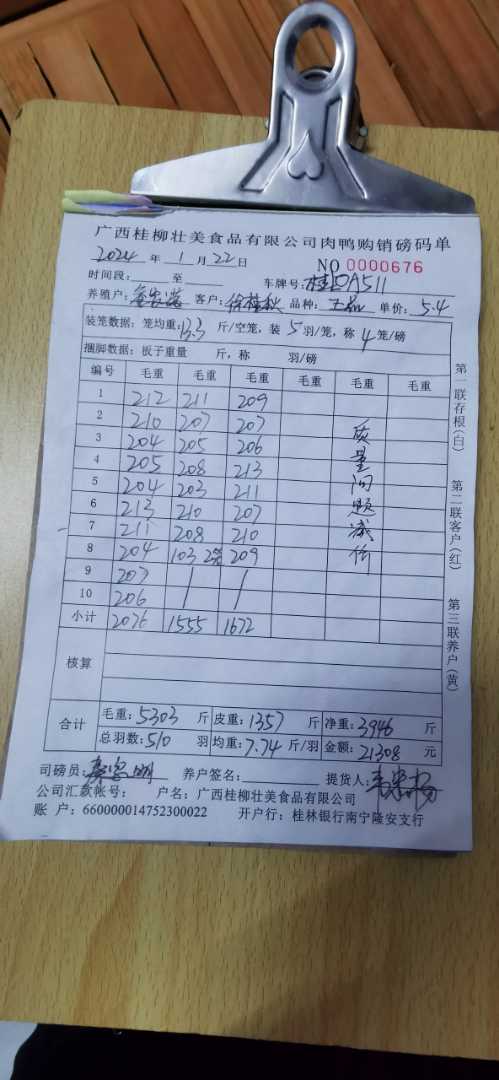 广西桂柳壮美食品有限公司肉鸭购销磅码单
2024 年 1 月 22 日 NO 0000676
时间段: 至 车牌号: 桂DA511
养殖户: 客户: 徐桂秋 品种: 单价: 5.4
装笼数据: 笼均重: 13.3 斤/空笼, 装 5 羽/笼, 称 4 笼/磅
捆脚数据: 板子重量 斤, 称 羽/磅
编号 毛重 毛重 毛重 毛重 毛重 毛重
1 212 211 209
2 210 207 207
3 204 205 206
4 205 208 213
5 204 203 211
6 213 210 207
7 211 208 210
8 204 103 2笼 209
9 207 / /
10 206 / /
小计 2076 1555 1672
质量问题减价
核算
合计 毛重: 5303 斤 皮重: 1357 斤 净重: 3946 斤
总羽数: 510 羽 均重: 7.74 斤/羽 金额: 21308 元
司磅员: 养户签名: 提货人:
公司汇款帐号: 户名: 广西桂柳壮美食品有限公司
账 户: 660000014752300022 开户行: 桂林银行南宁隆安支行
第一联存根(白)
第二联客户(红)
第三联养户(黄)